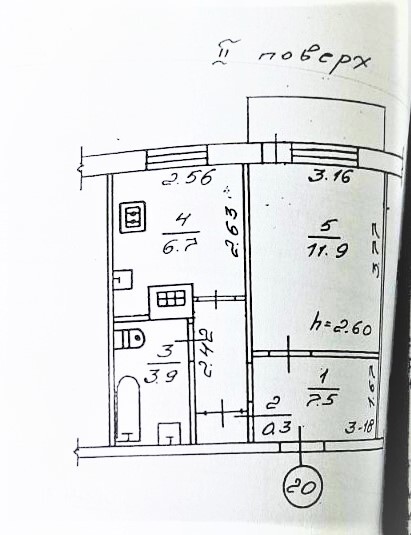 II поверх
2.56
3.16
4
6.7
2.63
5
11.9
3.77
h=2.60
3
3.9
2.42
1
7.5
1.67
2
0.3
3.18
20